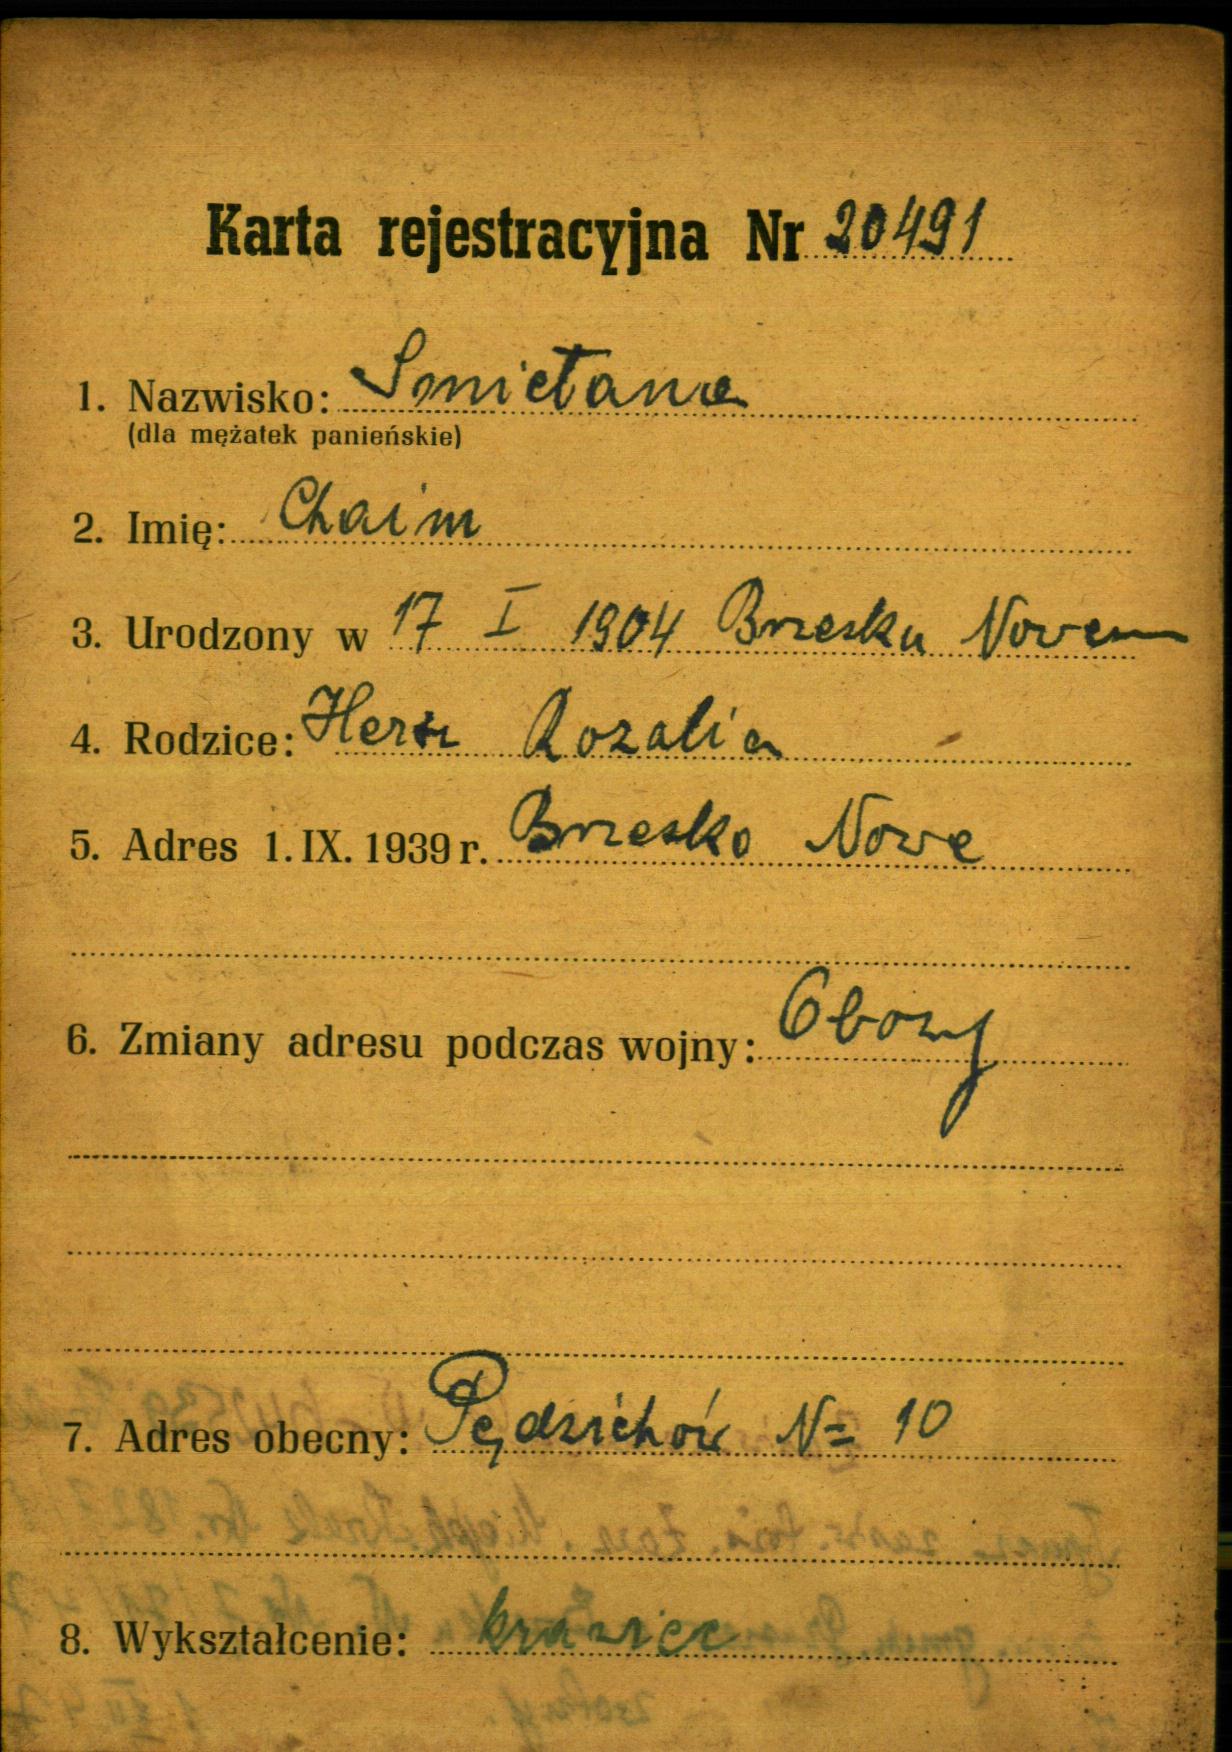 Karta rejestracyjna Nr 20491
1. Nazwisko: Smietana
(dla mężatek panieńskie)
2. Imię: Chaim
3. Urodzony w 17 I 1904 Brzesku Nowem
4. Rodzice: Rozalia
5. Adres 1. IX. 1939 r. Brzesko Nowe
6. Zmiany adresu podczas wojny: Obozy
7. Adres obecny: Pędzichów N= 10
8. Wykształcenie: krawiec